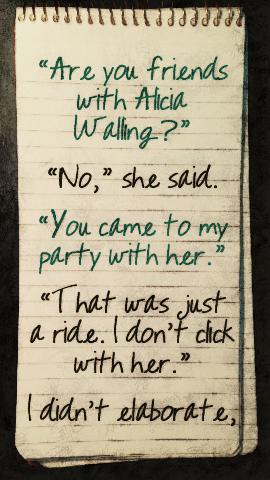 “Are you friends
with Alicia
Walling?”
“No,” she said.
“You came to my
party with her.”
“That was just
a ride. I don’t click
with her.”
I didn’t elaborate,